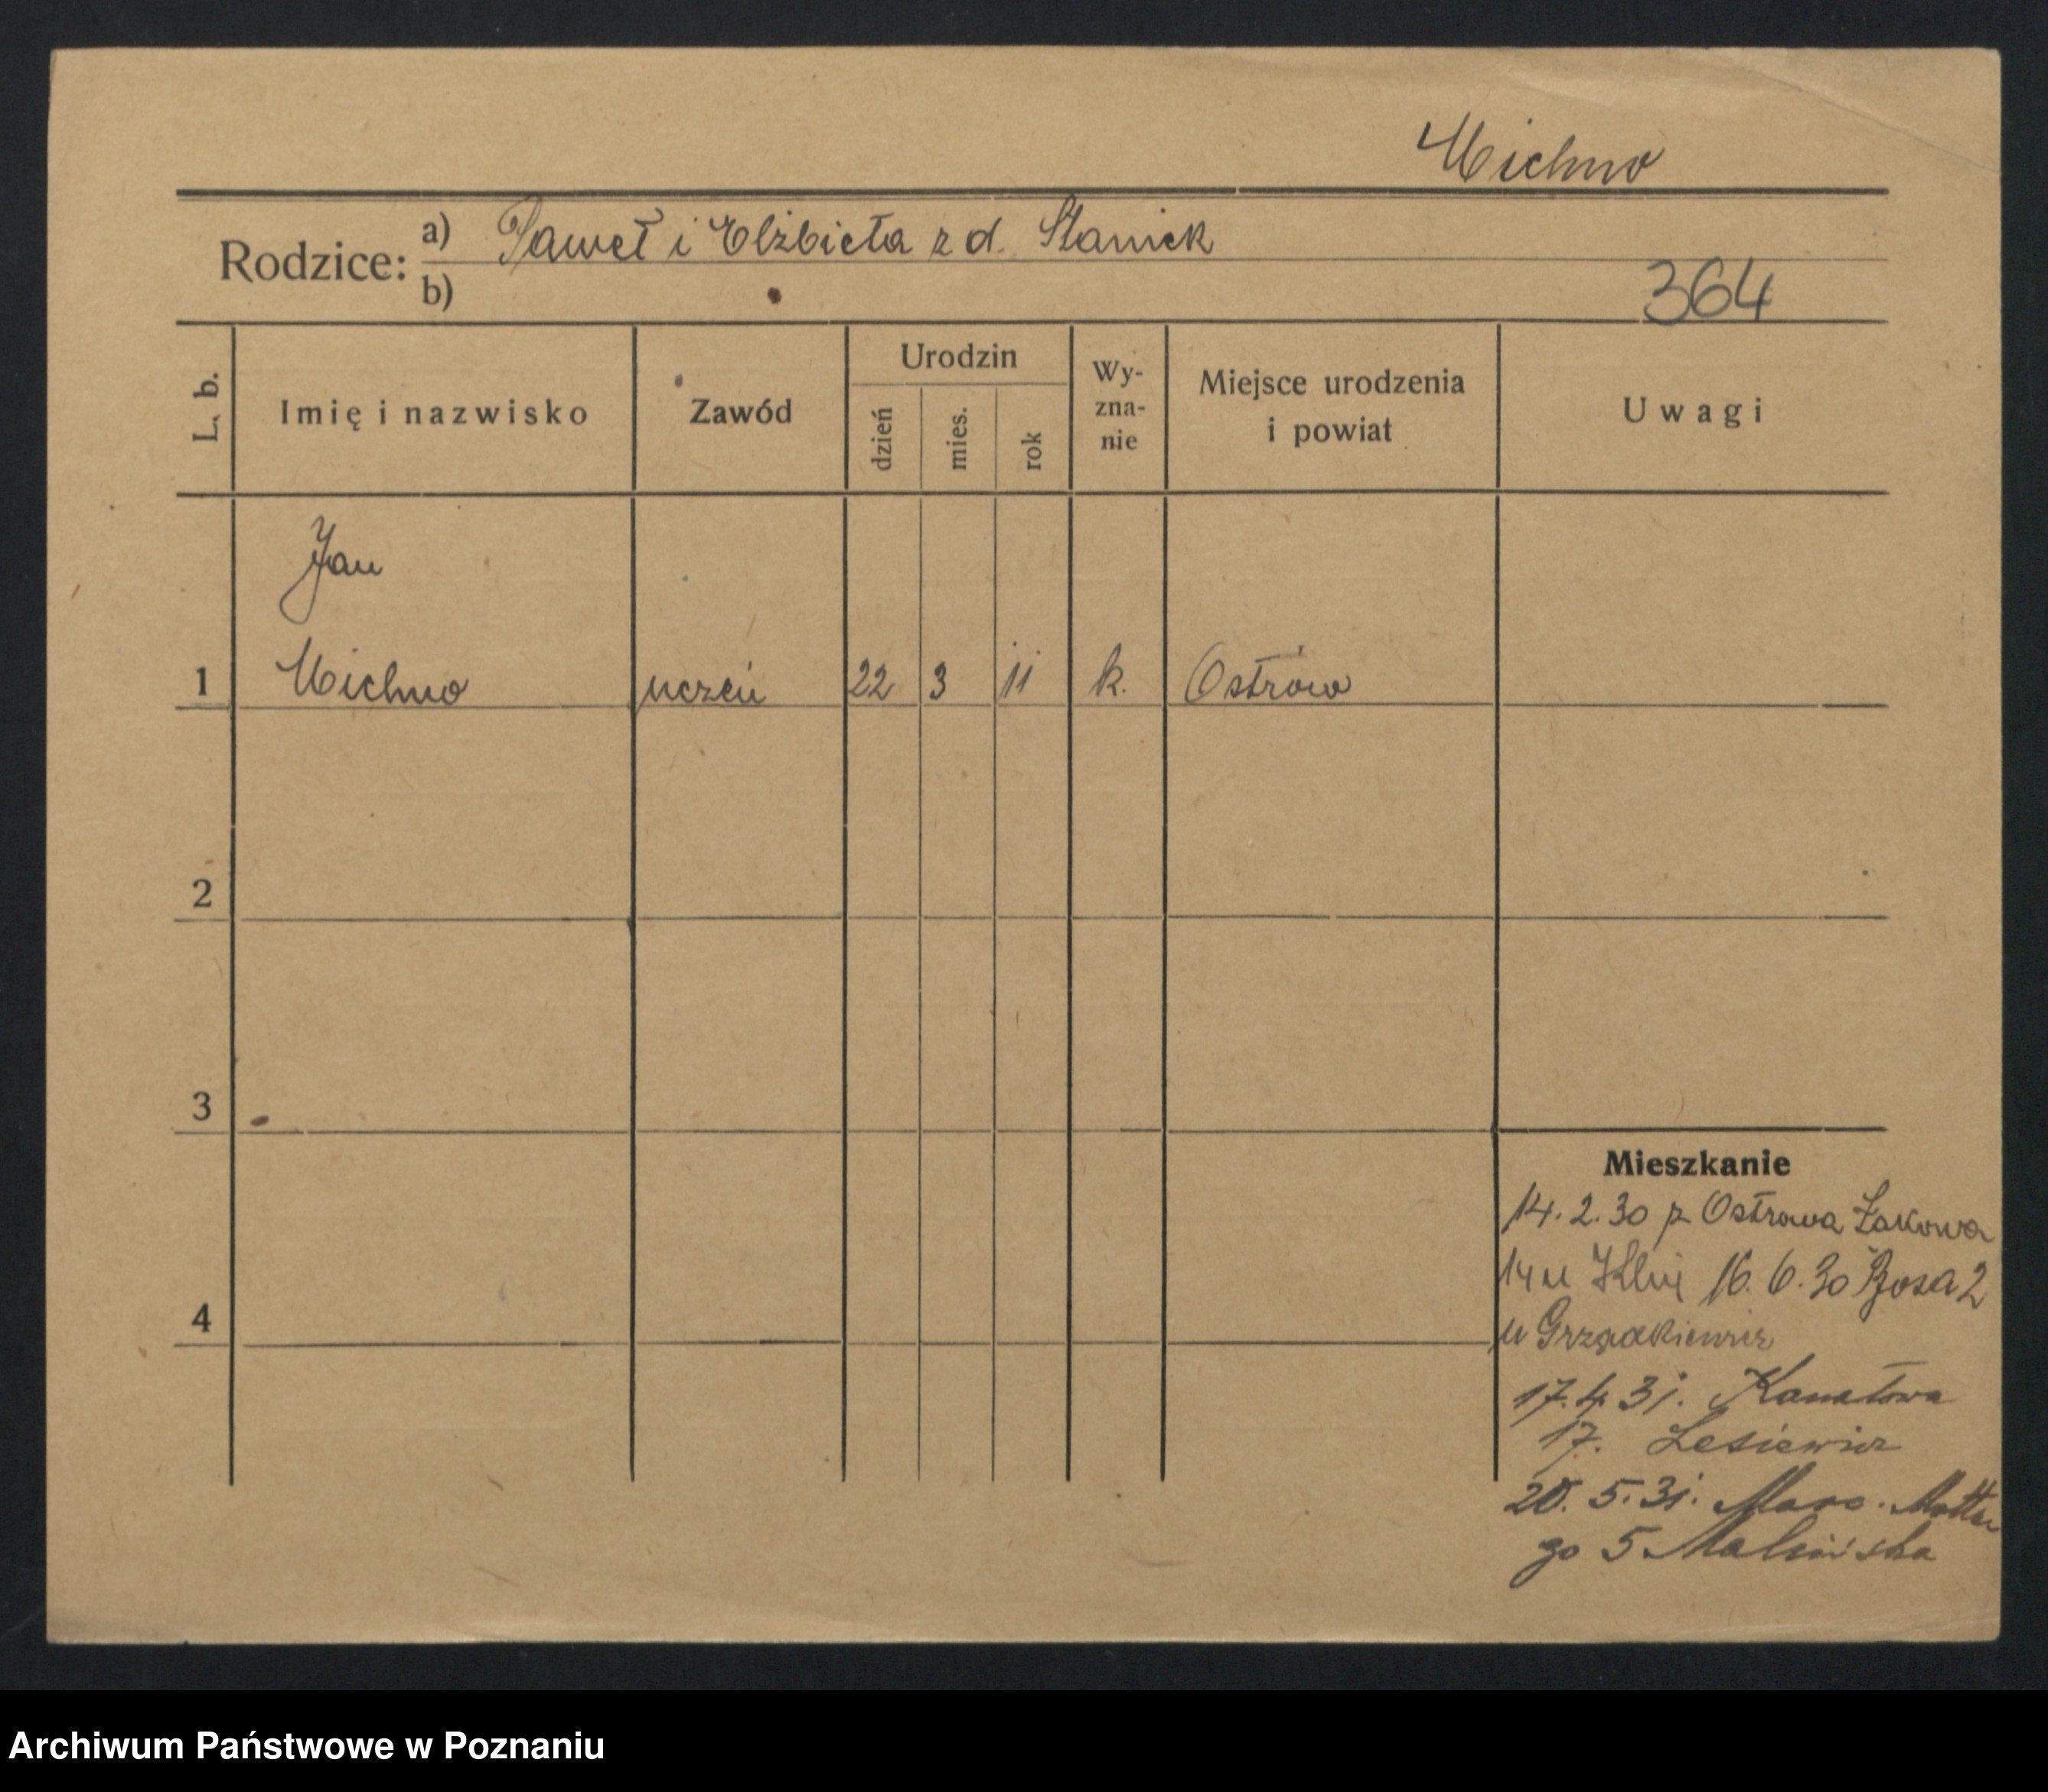 Michno
Rodzice:
a) Paweł i Elżbieta z d. Staniek
b)
364
L. b.
Imię i nazwisko
Zawód
Urodzin
dzień
mies.
rok
Wy-
zna-
nie
Miejsce urodzenia
i powiat
Uwagi
Jan
1 Michno uczeń 22 3 11 k. Ostrów
2
3
Mieszkanie
14. 2. 30 z Ostrowa Łąkowa
14 u 16. 6. 30 Bosa 2
4
u Grządkiewicz
17. 4. 31. Kanałowa
17. Lesiewicz
20. 5. 31. Marc. Motte
go 5 Malińska
Archiwum Państwowe w Poznaniu